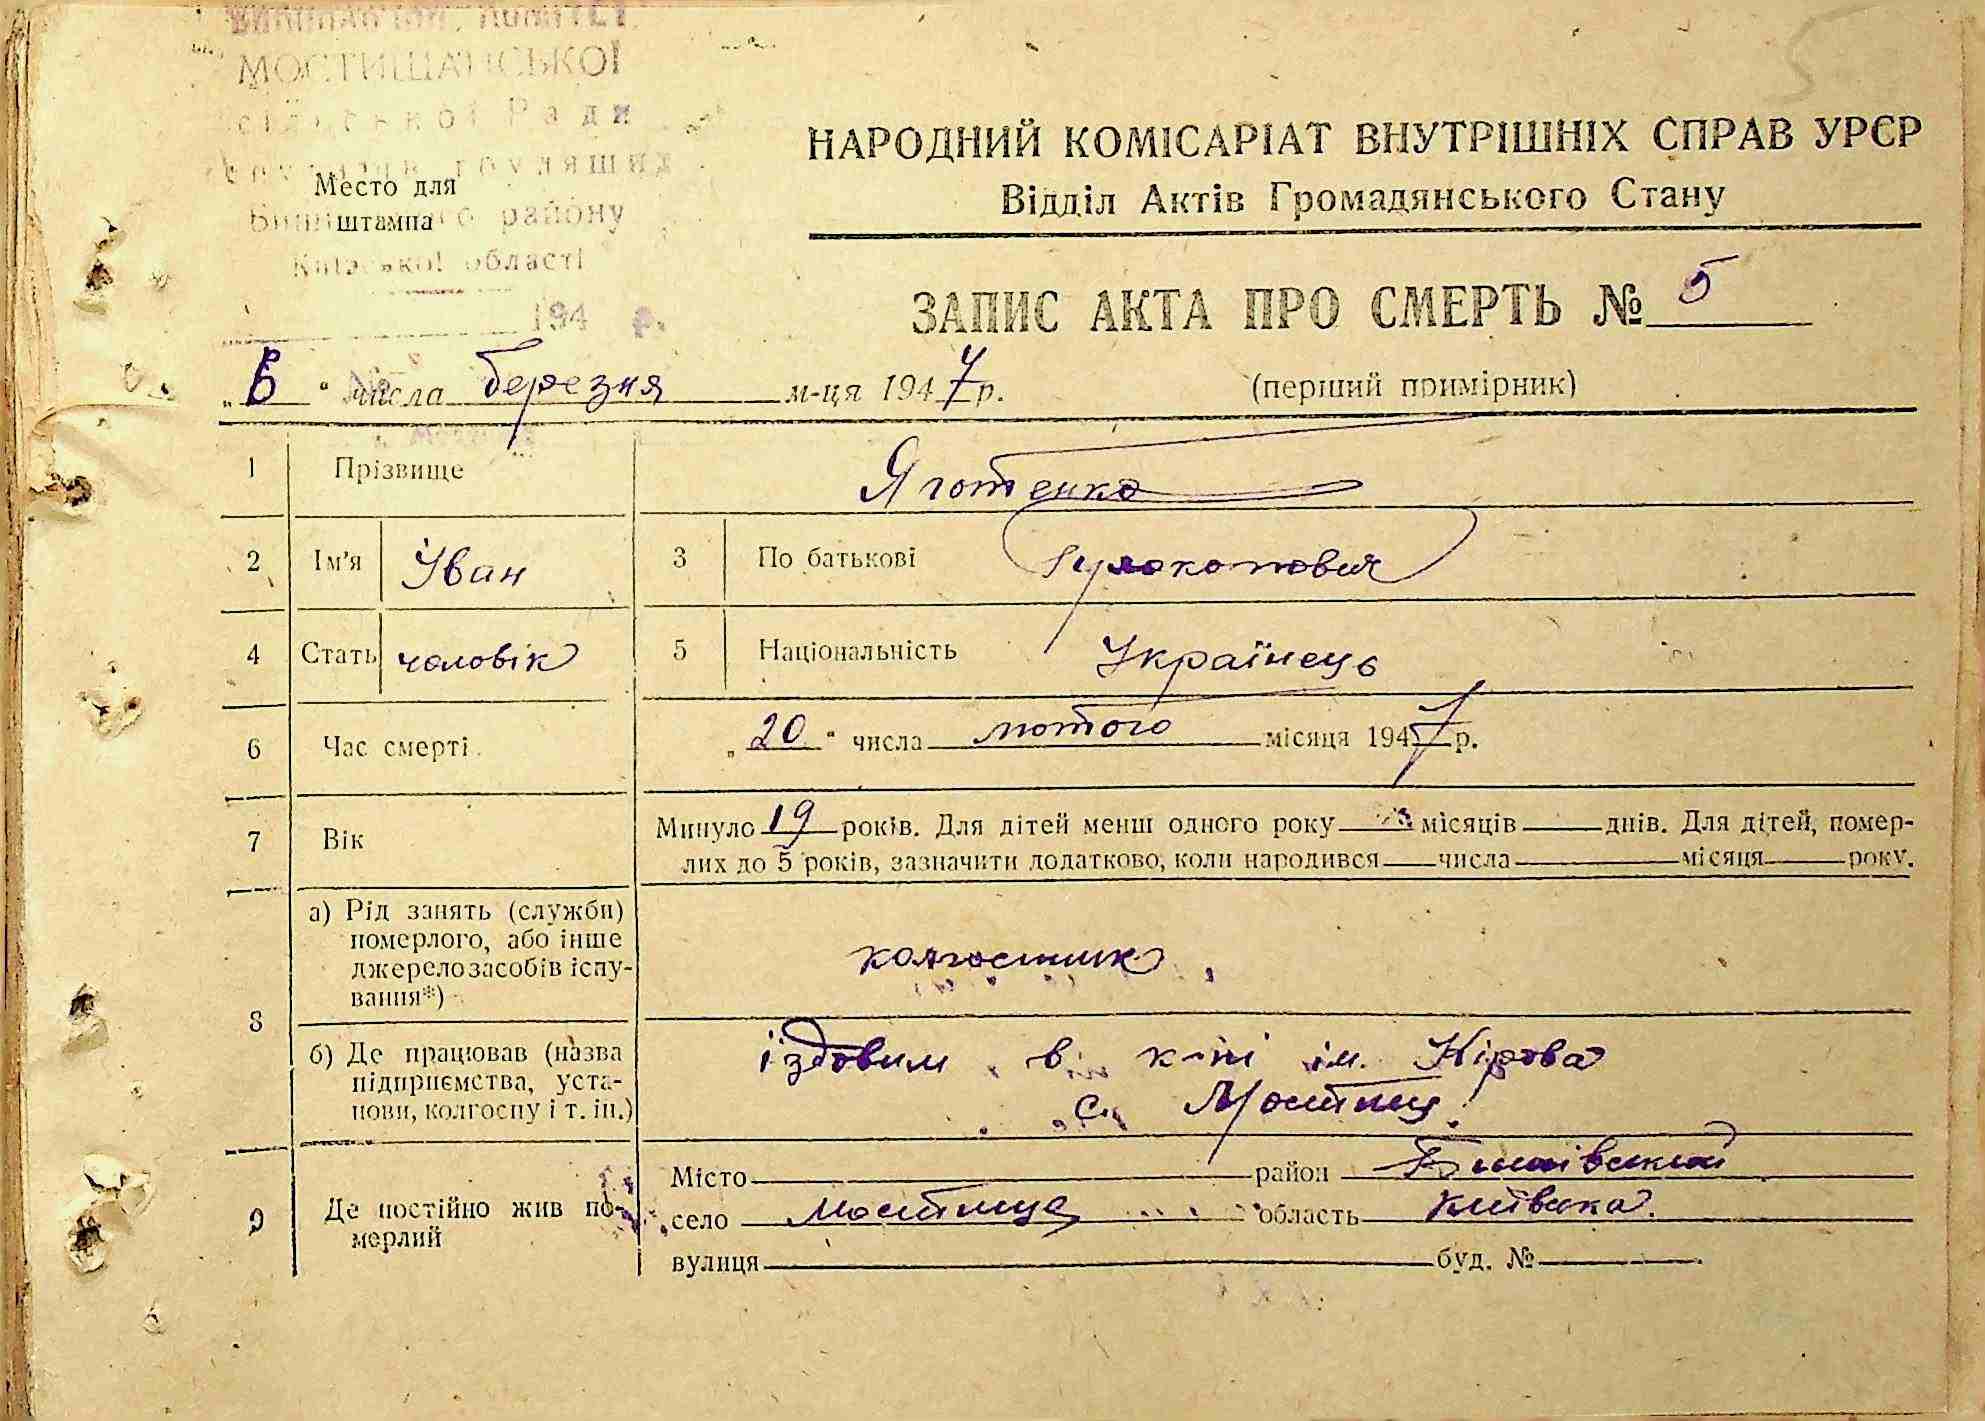 МОСТИЩАНСЬКОЇ
Ради
району
Київської області
194 р.
Место для
штампа
5
НАРОДНИЙ КОМІСАРІАТ ВНУТРІШНІХ СПРАВ УРСР
Відділ Актів Громадянського Стану
ЗАПИС АКТА ПРО СМЕРТЬ № 5
„6“ числа березня м-ця 1947 р. (перший примірник)
1 Прізвище Яготенко
2 Ім'я Іван 3 По батькові Прокопович
4 Стать чоловік 5 Національність Українець
6 Час смерті „20“ числа лютого місяця 1947 р.
7 Вік Минуло 19 років. Для дітей менш одного року місяців днів. Для дітей, помер-
лих до 5 років, зазначити додатково, коли народився числа місяця року.
8 а) Рід занять (служби)
померлого, або інше
джерело засобів існу-
вання*) колгоспник
б) Де працював (назва
підприємства, уста-
нови, колгоспу і т. ін.) їздовим в к-пі ім. Кірова
с. Мостищ
9 Де постійно жив по-
мерлий
Місто район
село Мостище область Київська.
вулиця буд. №